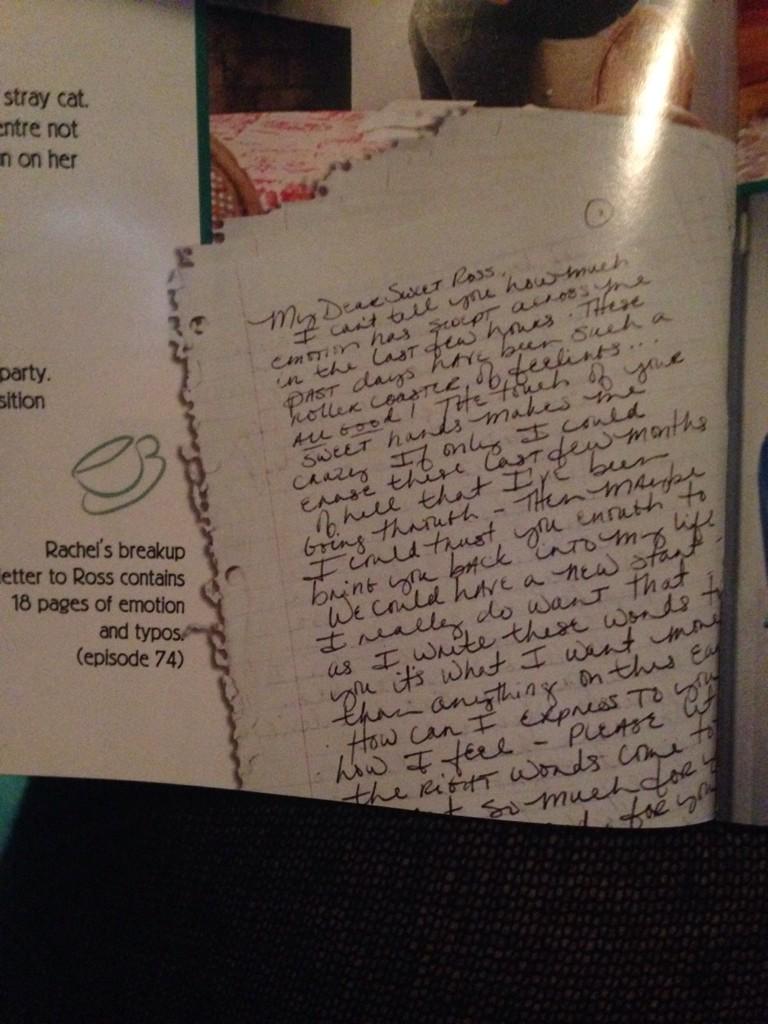 stray cat.
entre not
n on her
party.
sition
Rachel's breakup
letter to Ross contains
18 pages of emotion
and typos.
(episode 74)
1
My Dear Sweet Ross,
I can't tell you how much
emotion has swept across me
in the last few hours. These
past days have been such a
roller coaster of feelings...
All Good! The touch of your
sweet hands makes me
crazy If only I could
erase these last few months
of hell that I've been
going through - Then maybe
I could trust you enough to
bring you back into my life
We could have a new start -
I really do want that -
as I write these words t
you it's what I want more
than anything on this Ea
How can I express to you
how I feel - Please let
the right words come to
so much for y
for you